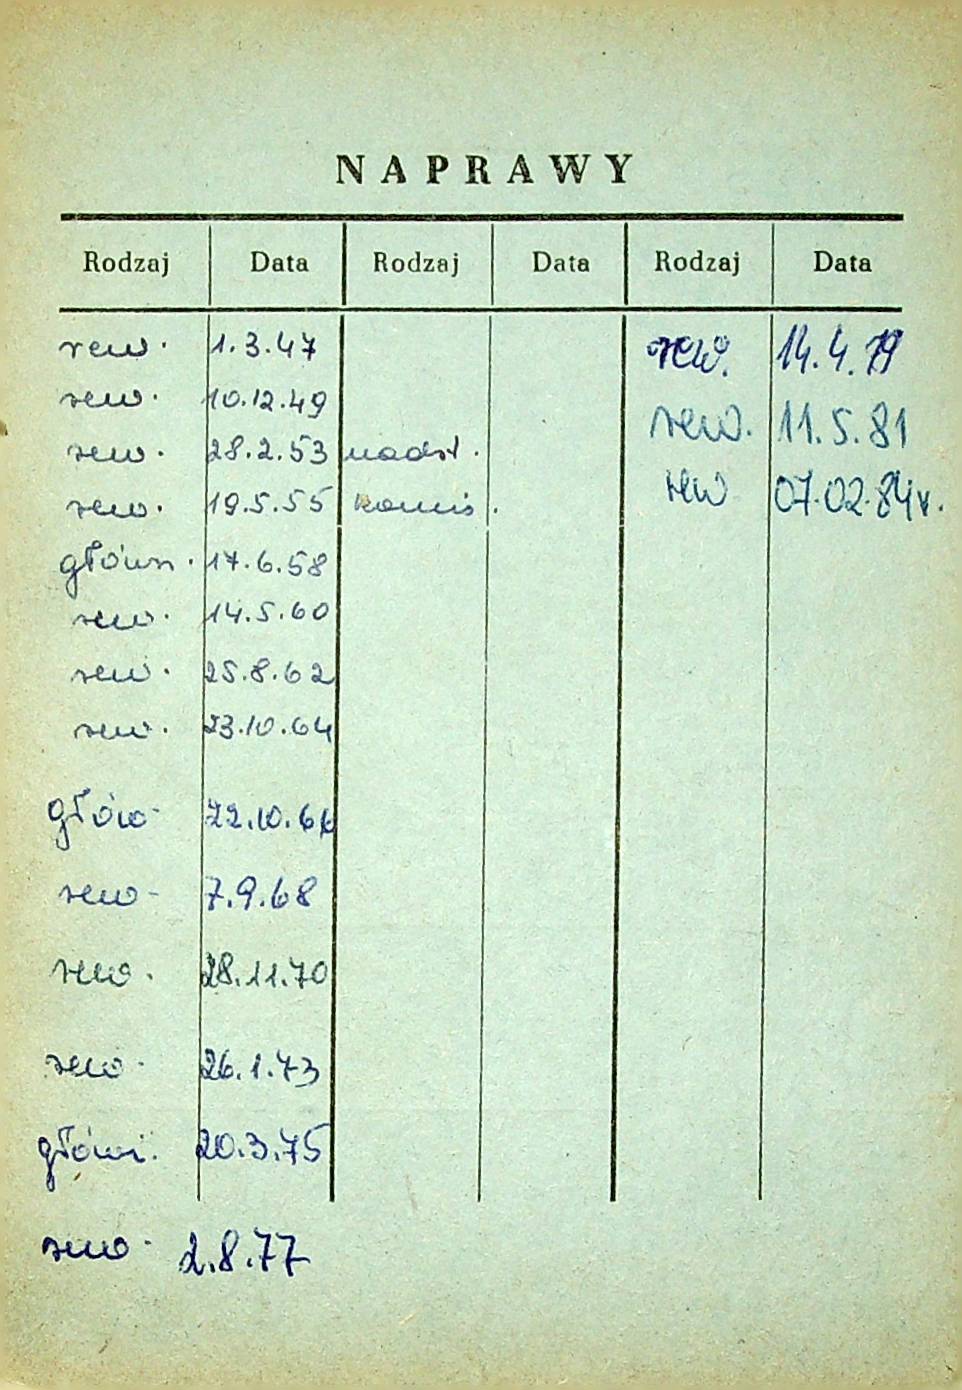 NAPRAWY
Rodzaj Data Rodzaj Data Rodzaj Data
rew. 1.3.47 rew. 14.4.79
rew. 10.12.49 rew. 11.5.81
rew. 28.2.53 nadst.
rew. 19.5.55 komis. rew 07.02.84r.
główn. 17.6.58
rew. 14.5.60
rew. 25.8.62
rew. 23.10.64
główn 22.10.66
rew- 7.9.68
rew. 28.11.70
rew. 26.1.73
główn. 20.3.75
rew. 2.8.77